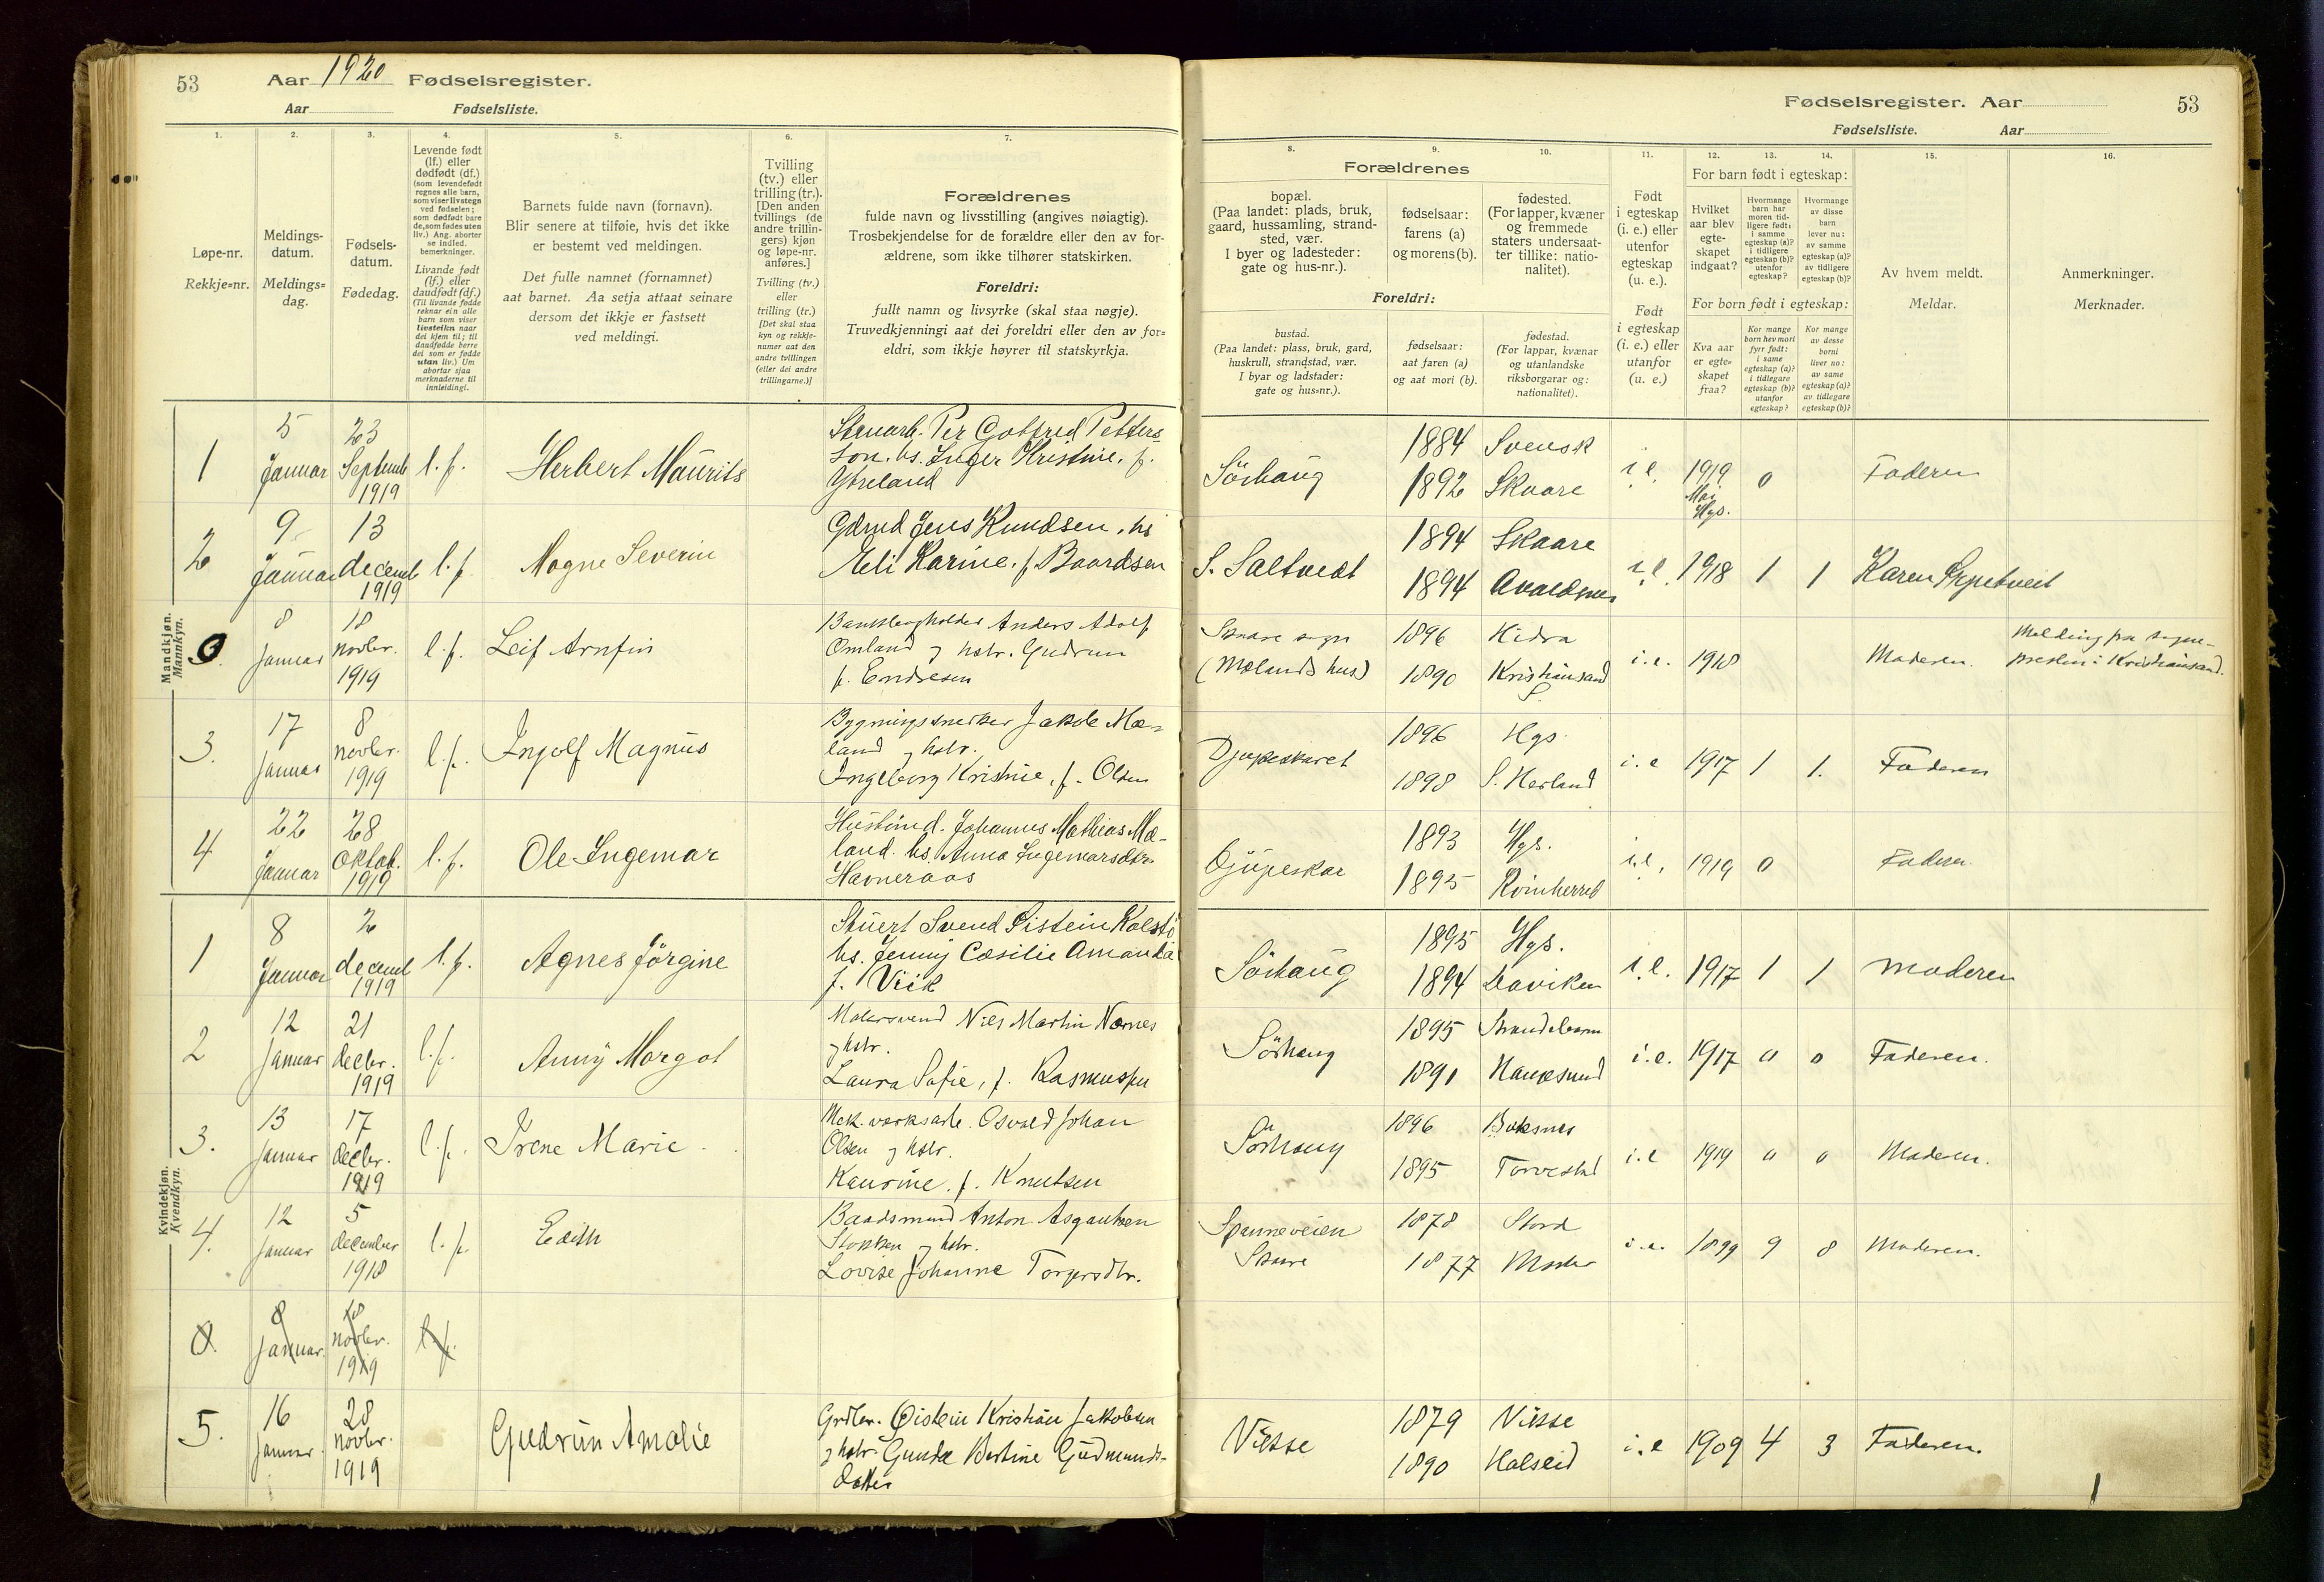 53
Aar 1920 Fødselsregister.
Aar Fødselsliste.
1.
2.
3.
4.
5.
6.
7.
Løpe-nr.
Rekkje=nr.
Meldings-
datum.
Meldings=
dag.
Fødsels-
datum.
Fødedag.
Levende født
(lf.) eller
dødfødt (df.)
(som levendefødt
regnes alle barn,
som viser livstegn
ved fødselen;
som dødfødt bare
de, som fødes uten
liv.) Ang. aborter
se indled.
bemerkninger.
Livande født
(lf.) eller
daudfødt (df.)
(Til livande fødde
reknar ein alle
barn som viser
livsteikn naar
dei kjem til; til
daudfødde berre
dei som er fødde
utan liv.) Um
abortar sjaa
merknaderne til
innleidingi.
Barnets fulde navn (fornavn).
Blir senere at tilføie, hvis det ikke
er bestemt ved meldingen.
Det fulle namnet (fornamnet)
aat barnet. Aa setja attaat seinare
dersom det ikkje er fastsett
ved meldingi.
Tvilling
(tv.) eller
trilling (tr.).
[Den anden
tvillings (de
andre trillin-
gers) kjøn
og løpe-nr.
anføres.]
Tvilling (tv.)
eller
trilling (tr.)
[Det skal staa
kyn og rekkje-
numer aat den
andre tvillingen
(eller dei andre
trillingarne.)]
Forældrenes
fulde navn og livsstilling (angives nøiagtig).
Trosbekjendelse for de forældre eller den av for-
ældrene, som ikke tilhører statskirken.
Foreldri:
fullt namn og livsyrke (skal staa nøgje).
Truvedkjenningi aat dei foreldri eller den av for=
eldri, som ikkje høyrer til statskyrkja.
Mandkjøn.
Mannkyn.
1
5 Januar
23 Septemb 1919
l. f.
Herbert Maurits
Per Gottfred Petters-
son. hs. Inger Kristine, f.
2
9 Januar
13 decemb 1919
l. f.
Magne Severin
Gdmd Jens Knudsen, hs
Eli Karine. f. Baardsen
0.
8 Januar
18 novbr. 1919
l. f.
Leif Arnfin
Anders Adolf
Omland og hstr. Gudrun
f. Endresen
3.
17 Januar
8 novbr. 1919
l. f.
Ingolf Magnus
Bygningssnedker Jakob Mæ-
land og hstr.
Ingeborg Kristine, f. Olsen
4
22 Januar
28 Oktob. 1919
l. f.
Ole Ingemar
Johannes Mathias Mæ-
land. hs. Anna Ingemarsdtr.
Havneraas
Kvindekjøn.
Kvendkyn.
1
8 Januar
2 decemb 1919
l. f.
Agnes Jörgine
Stuert Svend Øistein Kolstö
hs. Jenny Cæsilie Amanda
f. Viik
2
12 Januar
21 decbr. 1919
l. f.
Anny Margot
Malersvend Nils Martin Nornes
og hstr.
Laura Sofie, f. Rasmussen
3.
13 Januar
17 decbr. 1919
l. f.
Irene Marie
Mek. verksarb. Osvald Johan
Olsen og hstr.
Kaurine, f. Knutsen
4.
12 Januar
5 december 1918
l. f.
Edith
Baadsmand Anton Asgautsen
Stokken og hstr.
Lovise Johanne Torgersdtr.
0.
8 Januar.
18 novbr. 1919
l. f.
5.
16 Januar.
28 novbr. 1919
Gudrun Amalie
Grdbr. Øistein Kristian Jakobsen
og hstr. Gunda Bertine Gudmunds-
datter
Fødselsregister. Aar
53
Fødselsliste. Aar
8.
9.
10.
11.
12.
13.
14.
15.
16.
Forældrenes
bopæl.
(Paa landet: plads, bruk,
gaard, hussamling, strand-
sted, vær.
I byer og ladesteder:
gate og hus-nr.).
fødselsaar:
farens (a)
og morens (b).
fødested.
(For lapper, kvæner
og fremmede
staters undersaat-
ter tillike: natio-
nalitet).
Foreldri:
bustad.
(Paa landet: plass, bruk, gard,
huskrull, strandstad, vær.
I byar og ladstader:
gate og hus=nr.).
fødselsaar:
aat faren (a)
og aat mori (b).
fødestad.
(For lappar, kvænar
og utanlandske
riksborgarar og:
nationalitet).
Født
i egteskap
(i. e.) eller
utenfor
egteskap
(u. e.).
Født
i egteskap
(i. e.) eller
utanfor
(u. e.)
For barn født i egteskap:
Hvilket
aar blev
egte-
skapet
indgaat?
Hvormange
barn har
moren tid-
ligere født:
i samme
egteskap (a)?
i tidligere
egteskap (b)?
utenfor
egteskap?
Hvormange
av disse
barn
lever nu:
av samme
egteskap (a)?
av tidligere
egteskap (b)?
For born født i egteskap:
Kva aar
er egte=
skapet
fraa?
Kor mange
born hev mori
fyrr født:
i same
egteskap (a)?
i tidlegare
egteskap (b)?
utanfor
egteskap?
Kor mange
av desse
borni
liver no:
av same
egteskap (a)?
av tidlegare
egteskap (b)?
Av hvem meldt.
Meldar.
Anmerkninger.
Merknader.
Sörhaug
1884 Svensk
1892 Skaare
i. e. 1919 Mai Hgs. 0 Faderen
S. Saltvedt
1894 Skaare
1894 Avaldsnes
i. e. 1918 1 1 Karen
Skaare sogn
(Mælands hus)
1896 Hidra
1890 Kristiansand S.
i. e. 1918 Moderen.
Melding fra sogne-
presten i Kristiansand.
Djupeskaret
1896 Hgs.
1898 S. Hauland
i. e 1917 1 1. Faderen
Djupeskar
1893 Hgs.
1895 Kvinherred
i. e. 1919 0 Faderen
Sörhaug
1895 Hgs.
1894 Daviken
i. e. 1917 1 1 Moderen
Sörhaug
1895 Strandebarm
1891 Haugesund
i. e. 1917 0 0 Faderen.
Sörhaug
1896 Buksnes
1895 Torvestad
i. e 1919 0 0 Moderen.
Spanneveien
Skaare
1878 Stord
1877
i. e. 1899 9 8 Moderen.
Vikse
1879 Vikse
1890 Halseid
i. e 1909 4 3 Faderen.
1